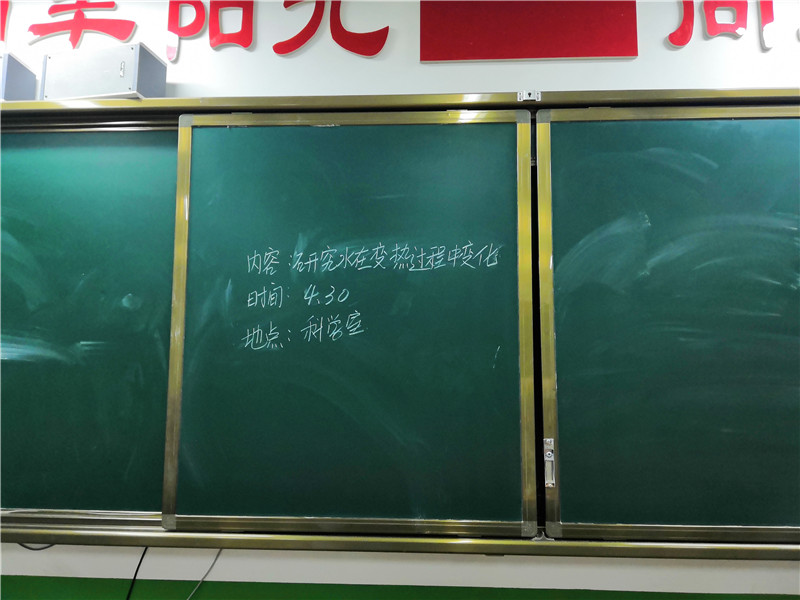 阳光
内容:研究水在变热过程中变化
时间:4.30
地点:科学室